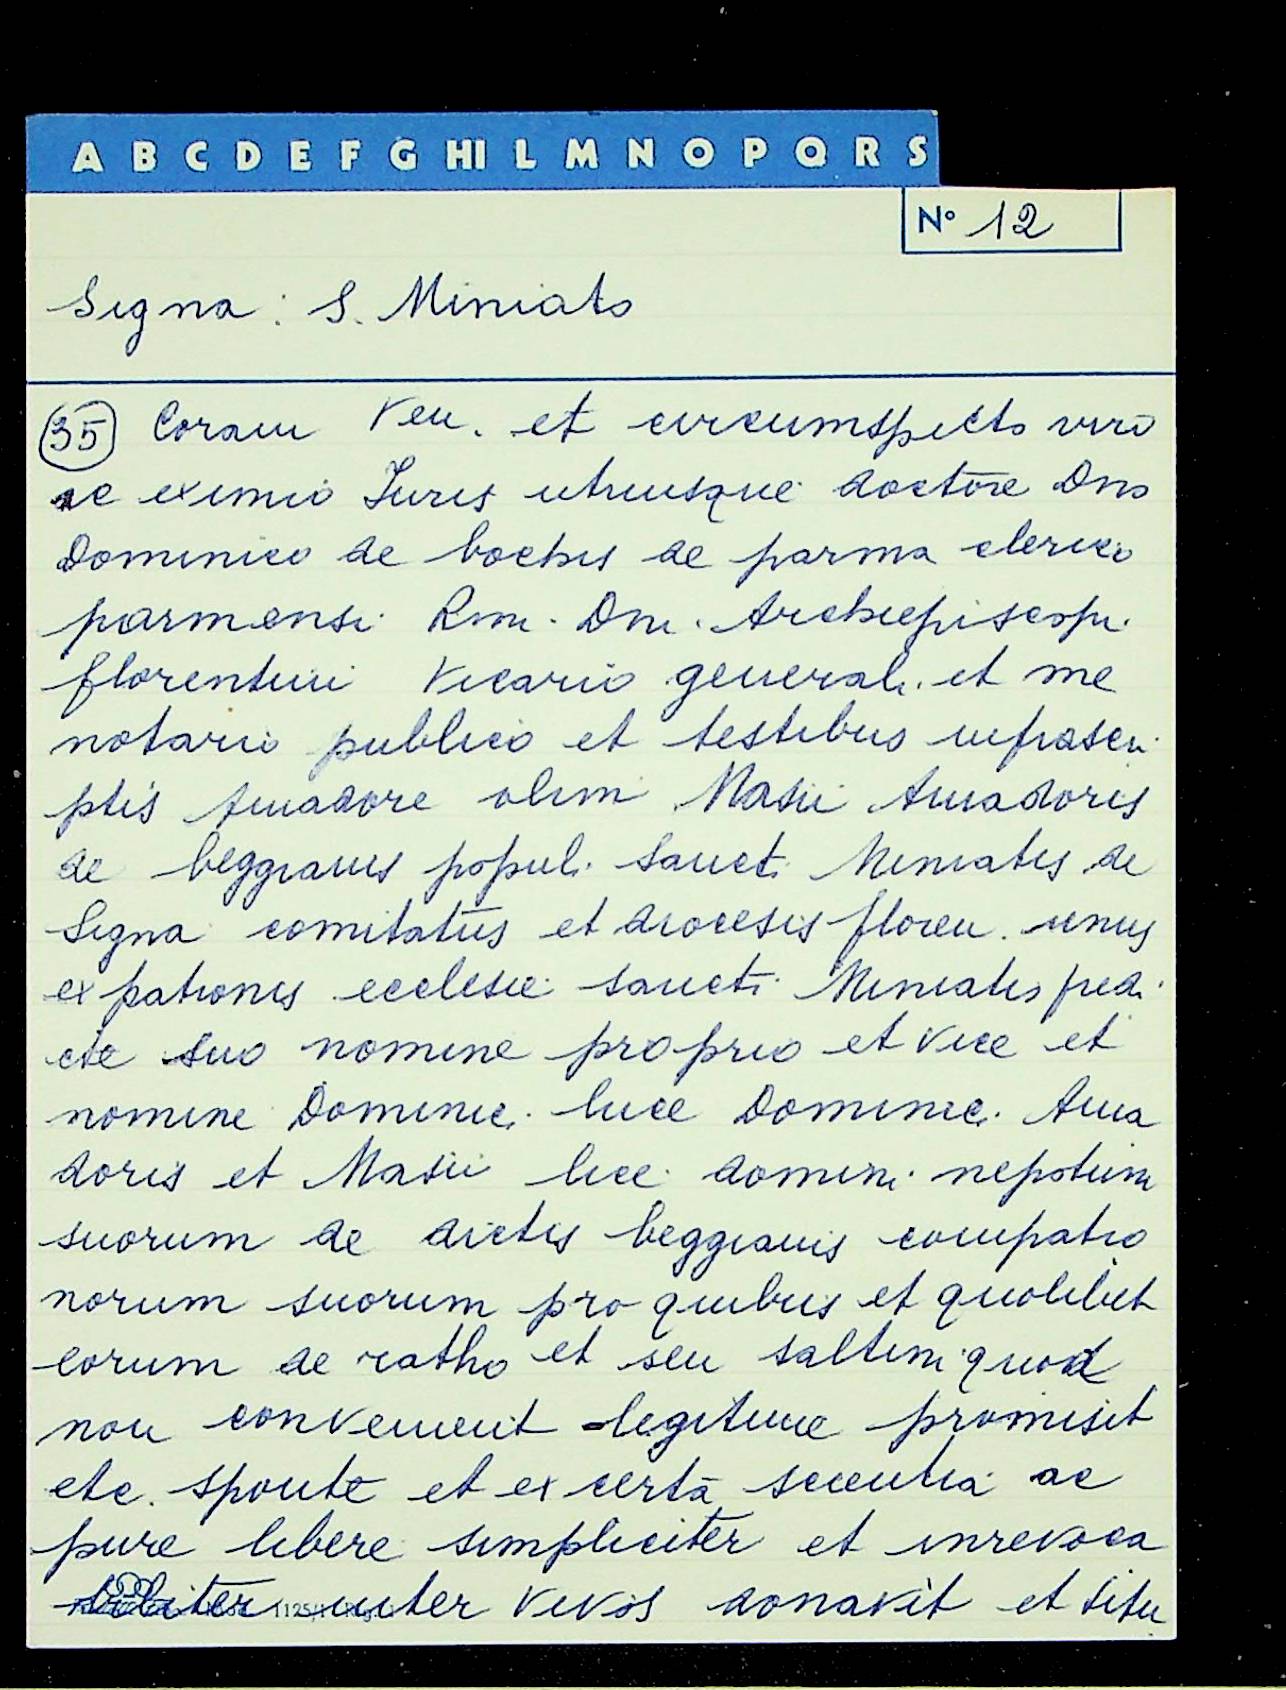 A B C D E F G HI L M N O P Q R S
N° 12
Signa: S. Miniato
35 Coram Ven. et circumspecto viro
ac eximio Iuris utriusque doctore Dno
Dominico de bochis de parma clerico
parmensi Rmi. Dni. Archiepiscopi
florentini Vicario generali et me
notario publico et testibus infrascri
ptis Amadore olim Masii Amadoris
de beggianis populi Sancti Miniatis de
Signa comitatus et diocesis floren. unus
ex patronis ecclesie Sancti Miniatis predi
cte suo nomine proprio et vice et
nomine Dominici luce Dominici Ama
doris et Masii luce domini nepotum
suorum de dictis beggianis compatro
norum suorum pro quibus et quolibet
eorum de ratho et seu saltim quod
non convenient legitime promisit
etc. sponte et ex certa scientia ac
pure libere simpliciter et inrevoca
biliter inter vivos donavit et titu